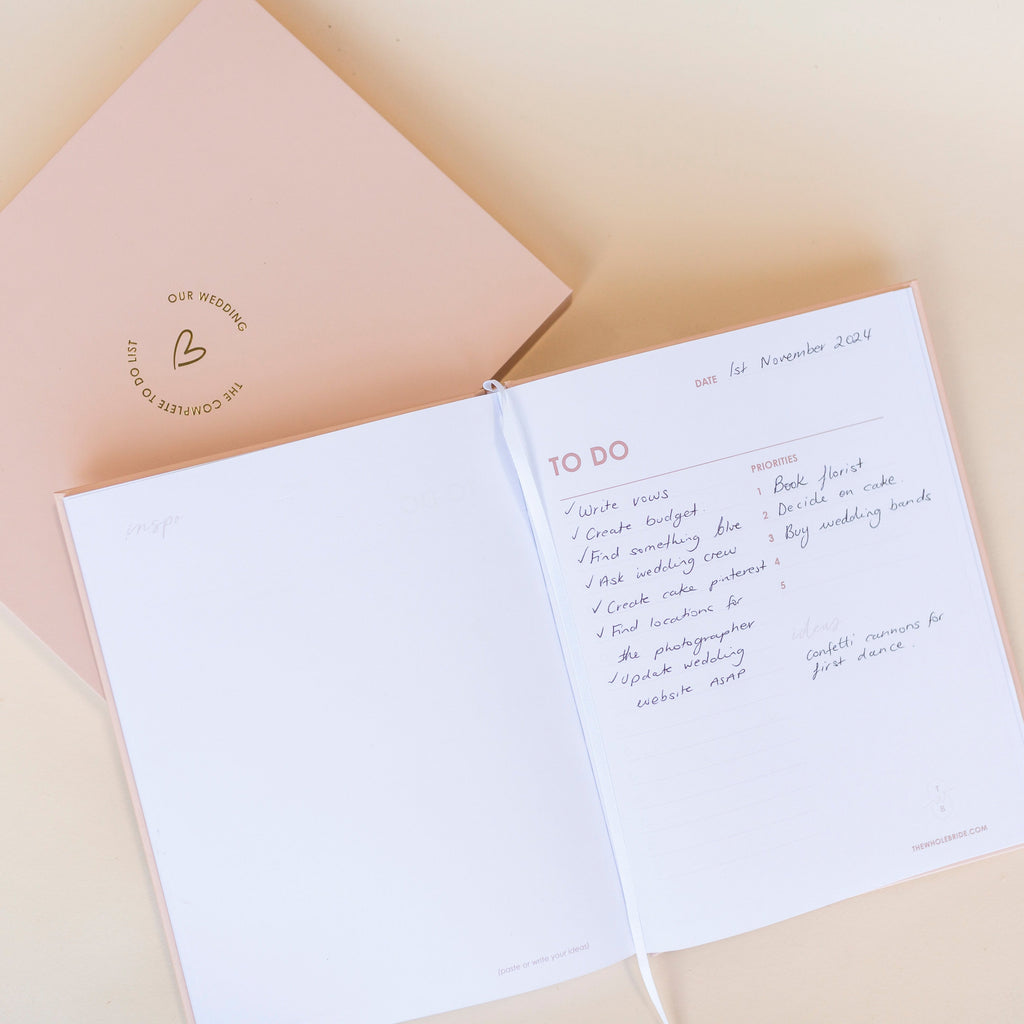 OUR WEDDING
THE COMPLETE TO DO LIST
inspo
(paste or write your ideas)
DATE 1st November 2024
TO DO
✓ Write vows
✓ Create budget.
✓ Find something blue
✓ Ask wedding crew
✓ Create cake pinterest
✓ Find locations for
the photographer
✓ Update wedding
website ASAP
PRIORITIES
1 Book florist
2 Decide on cake.
3 Buy wedding bands
4
5
ideas
confetti cannons for
first dance.
T
B
THEWHOLEBRIDE.COM